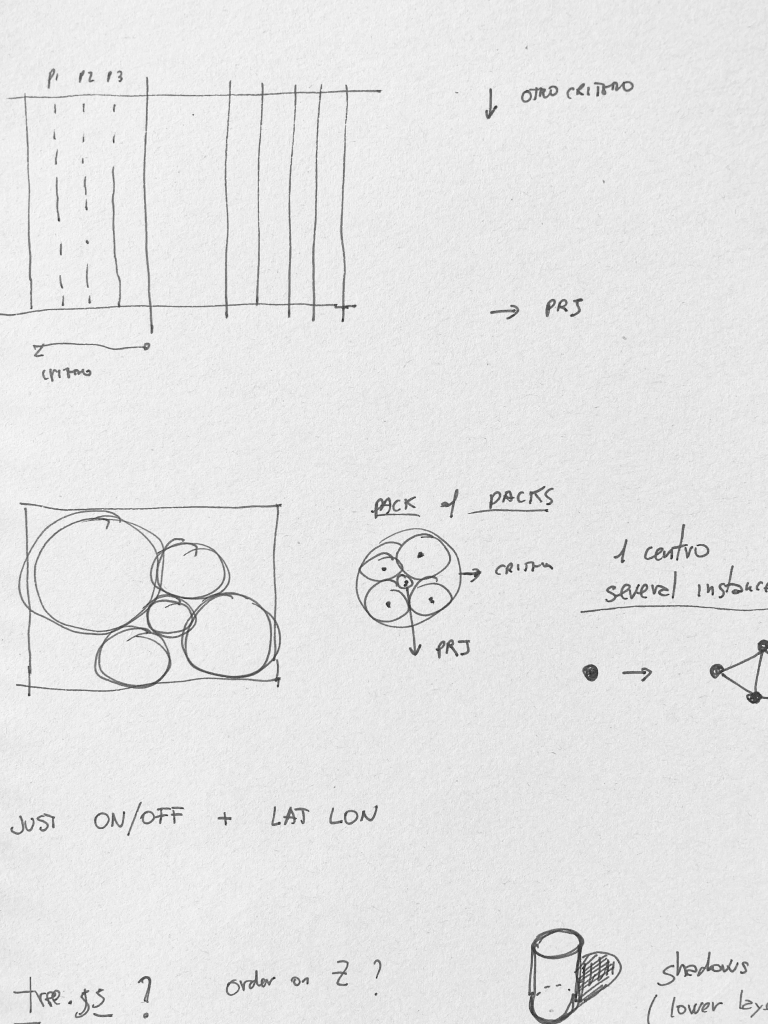 P1 P2 P3
OTRO CRITERIO
PRJ
CRITERIO
PACK of PACKS
CRITERIO
PRJ
1 centro
several instance
JUST ON/OFF + LAT LON
order on Z ?
shadows
(lower lay